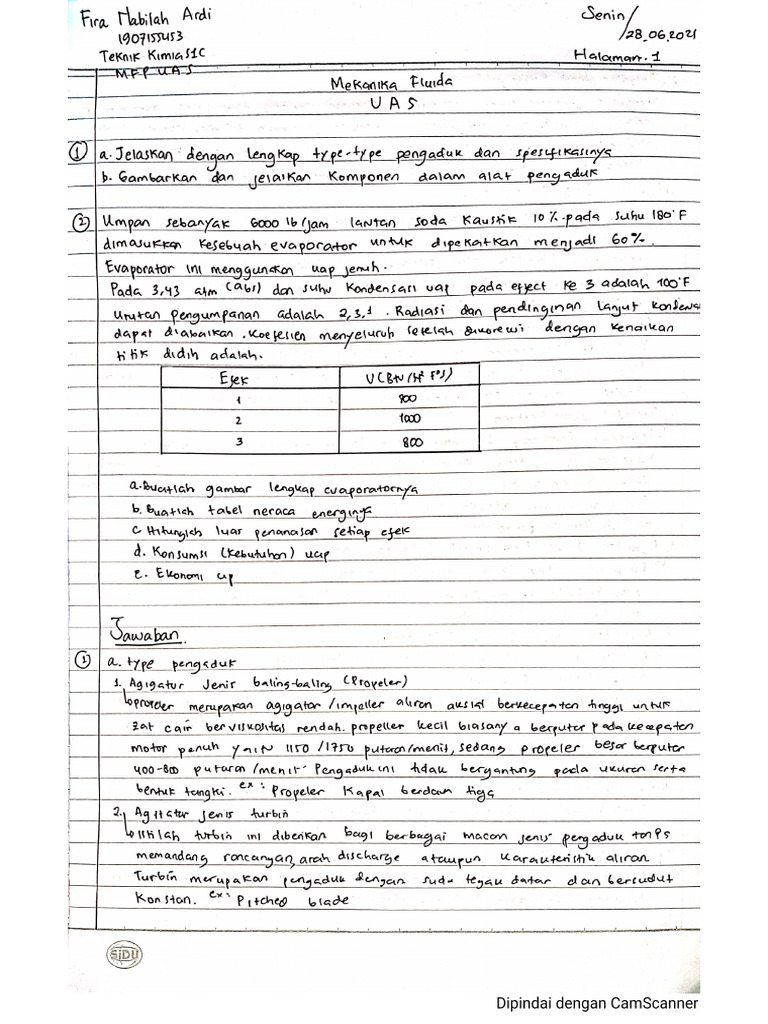 Fira Nabilah Ardi
Senin/
1907155453
28.06.2021
Teknik Kimia S1C
Halaman. 1
MFP UAS
Mekanika Fluida
UAS
① a. Jelaskan dengan lengkap type-type pengaduk dan spesifikasinya
b. Gambarkan dan jelaskan komponen dalam alat pengaduk
② Umpan sebanyak 6000 lb/jam larutan soda kaustik 10% pada suhu 180°F
dimasukkan kesebuah evaporator untuk dipekatkan menjadi 60%.
Evaporator ini menggunakan uap jenuh.
Pada 3,43 atm (abs) dan suhu kondensasi uap pada efject ke 3 adalah 100°F
Urutan pengumpanan adalah 2,3,1. Radiasi dan pendinginan lanjut kondensa
dapat diabaikan. Koefesien menyeluruh setelah dikoreksi dengan kenaikan
titik didih adalah.
Efek U(BTU/ft² F°S)
1
2 1000
3 800
a. Buatlah gambar lengkap evaporatornya
b. Buatlah tabel neraca energinya
c. Hitunglah luas pemanasan setiap efek
d. Konsumsi (kebutuhan) uap
e. Ekonomi up
Jawaban.
① a. type pengaduk
1. Agigatur Jenis baling-baling (Propeler)
↳ merupakan agigator/impeller aliran aksial berkecepatan tinggi untuk
zat cair berviskositas rendah. propeller kecil biasanya berputar pada kecepatan
motor penuh yaitu 1150/1750 putaran/menit, sedang propeler besar berputar
400-800 putaran/menit. Pengaduk ini tidak bergantung pada ukuran serta
bentuk tangki. ex: Propeler Kapal berdaun tiga
2. Agitatur jenis turbin
↳ Istilah turbin ini diberikan bagi berbagai macam jenis pengaduk tanpa
memandang rancangan, arah discharge ataupun karakteristik aliran
Turbin merupakan pengaduk dengan sudu tegak datar dan bersudut
Konstan. ex: Pitched blade
SIDU
Dipindai dengan CamScanner